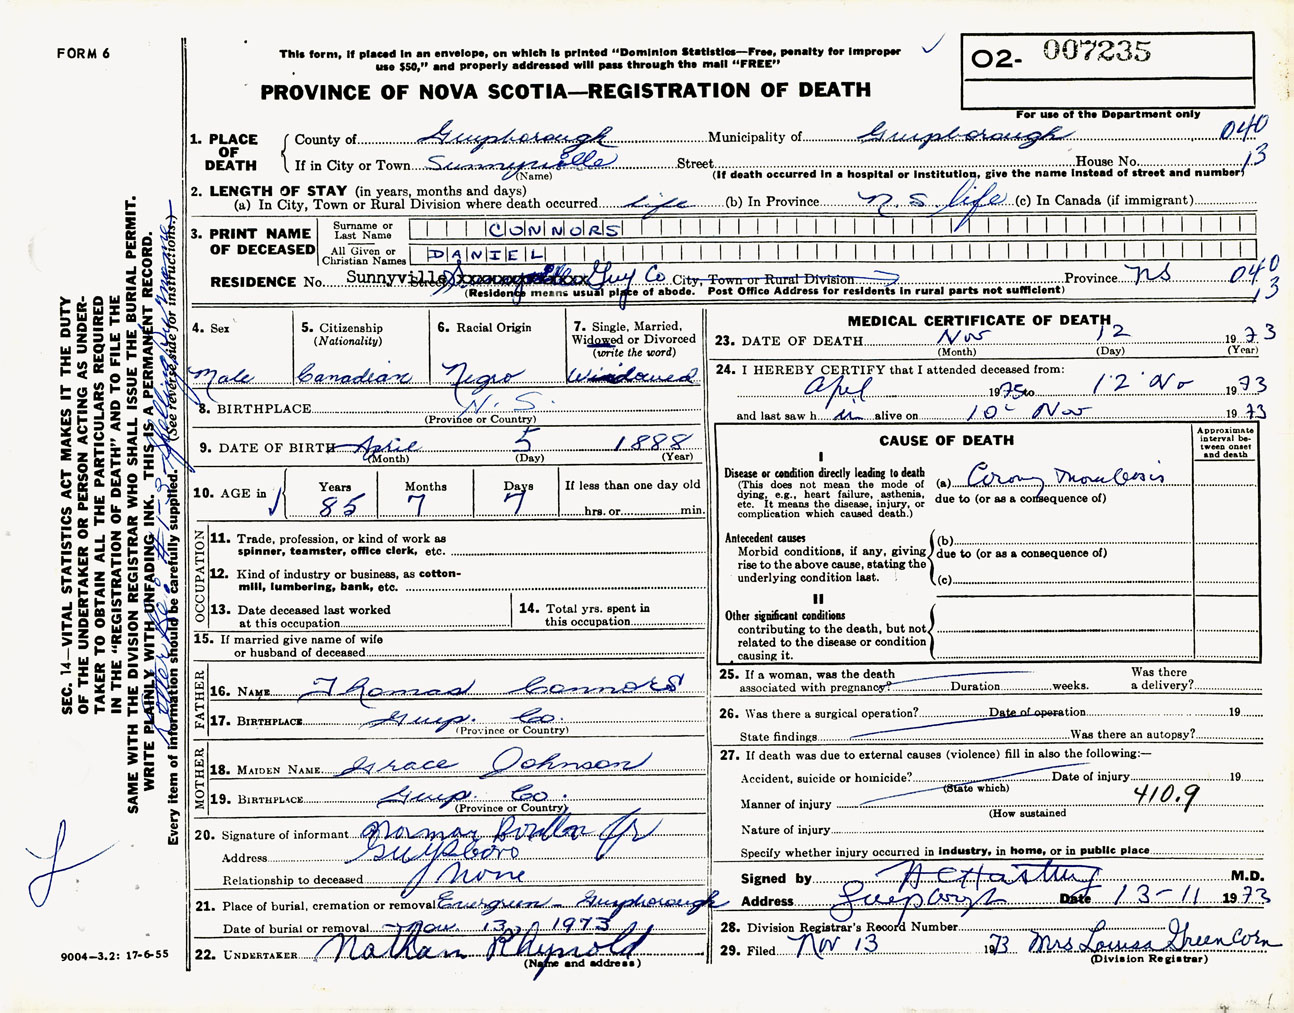 FORM 6
This form, if placed in an envelope, on which is printed "Dominion Statistics—Free, penalty for improper
use $50," and properly addressed will pass through the mail "FREE"
O2- 007235
PROVINCE OF NOVA SCOTIA—REGISTRATION OF DEATH
For use of the Department only
1. PLACE OF DEATH
County of Guysborough Municipality of Guysborough 040
If in City or Town Sunnyville Street House No. 13
(Name) (If death occurred in a hospital or institution, give the name instead of street and number)
2. LENGTH OF STAY (in years, months and days)
(a) In City, Town or Rural Division where death occurred life (b) In Province N.S. life (c) In Canada (if immigrant)
3. PRINT NAME OF DECEASED
Surname or Last Name CONNORS
All Given or Christian Names DANIEL
RESIDENCE No. Sunnyville Street Guy Co City, Town or Rural Division Province NS 040
(Residence means usual place of abode. Post Office Address for residents in rural parts not sufficient) 13
4. Sex
Male
5. Citizenship
(Nationality)
Canadian
6. Racial Origin
Negro
7. Single, Married,
Widowed or Divorced
(write the word)
Widowed
8. BIRTHPLACE N.S.
(Province or Country)
9. DATE OF BIRTH April 5 1888
(Month) (Day) (Year)
10. AGE in
Years Months Days If less than one day old
85 7 7 hrs. or min.
OCCUPATION
11. Trade, profession, or kind of work as
spinner, teamster, office clerk, etc.
12. Kind of industry or business, as cotton-
mill, lumbering, bank, etc.
13. Date deceased last worked
at this occupation
14. Total yrs. spent in
this occupation
15. If married give name of wife
or husband of deceased
FATHER
16. NAME Thomas Connors
17. BIRTHPLACE Guys. Co.
(Province or Country)
MOTHER
18. MAIDEN NAME Grace Johnson
19. BIRTHPLACE Guys. Co.
(Province or Country)
20. Signature of informant Norman Jr
Address Guysboro
Relationship to deceased None
21. Place of burial, cremation or removal Evergreen - Guysborough
Date of burial or removal Nov. 13, 1973
22. UNDERTAKER Nathan Rhynold
(Name and address)
MEDICAL CERTIFICATE OF DEATH
23. DATE OF DEATH Nov 12 1973
(Month) (Day) (Year)
24. I HEREBY CERTIFY that I attended deceased from:
April 19 to 12 Nov 1973
and last saw h im alive on 10 Nov 1973
CAUSE OF DEATH
Approximate
interval be-
tween onset
and death
I
Disease or condition directly leading to death
(This does not mean the mode of
dying, e.g., heart failure, asthenia,
etc. It means the disease, injury, or
complication which caused death.)
(a) Coronary Thrombosis
due to (or as a consequence of)
Antecedent causes
Morbid conditions, if any, giving
rise to the above cause, stating the
underlying condition last.
(b)
due to (or as a consequence of)
(c)
II
Other significant conditions
contributing to the death, but not
related to the disease or condition
causing it.
25. If a woman, was the death
associated with pregnancy? Duration weeks. Was there
a delivery?
26. Was there a surgical operation? Date of operation 19
State findings Was there an autopsy?
27. If death was due to external causes (violence) fill in also the following:—
Accident, suicide or homicide? Date of injury 19
(State which)
Manner of injury 410.9
(How sustained
Nature of injury
Specify whether injury occurred in industry, in home, or in public place
Signed by M.D.
Address Guysborough Date 13-11 1973
28. Division Registrar's Record Number
29. Filed Nov 13 1973 Mrs Louisa GreenCorn
(Division Registrar)
SEC. 14—VITAL STATISTICS ACT MAKES IT THE DUTY
OF THE UNDERTAKER OR PERSON ACTING AS UNDER-
TAKER TO OBTAIN ALL THE PARTICULARS REQUIRED
IN THE "REGISTRATION OF DEATH" AND TO FILE THE
SAME WITH THE DIVISION REGISTRAR WHO SHALL ISSUE THE BURIAL PERMIT.
WRITE PLAINLY WITH UNFADING INK. THIS IS A PERMANENT RECORD.
Every item of information should be carefully supplied. (See reverse side for instructions.)
9004—3.2: 17-6-55